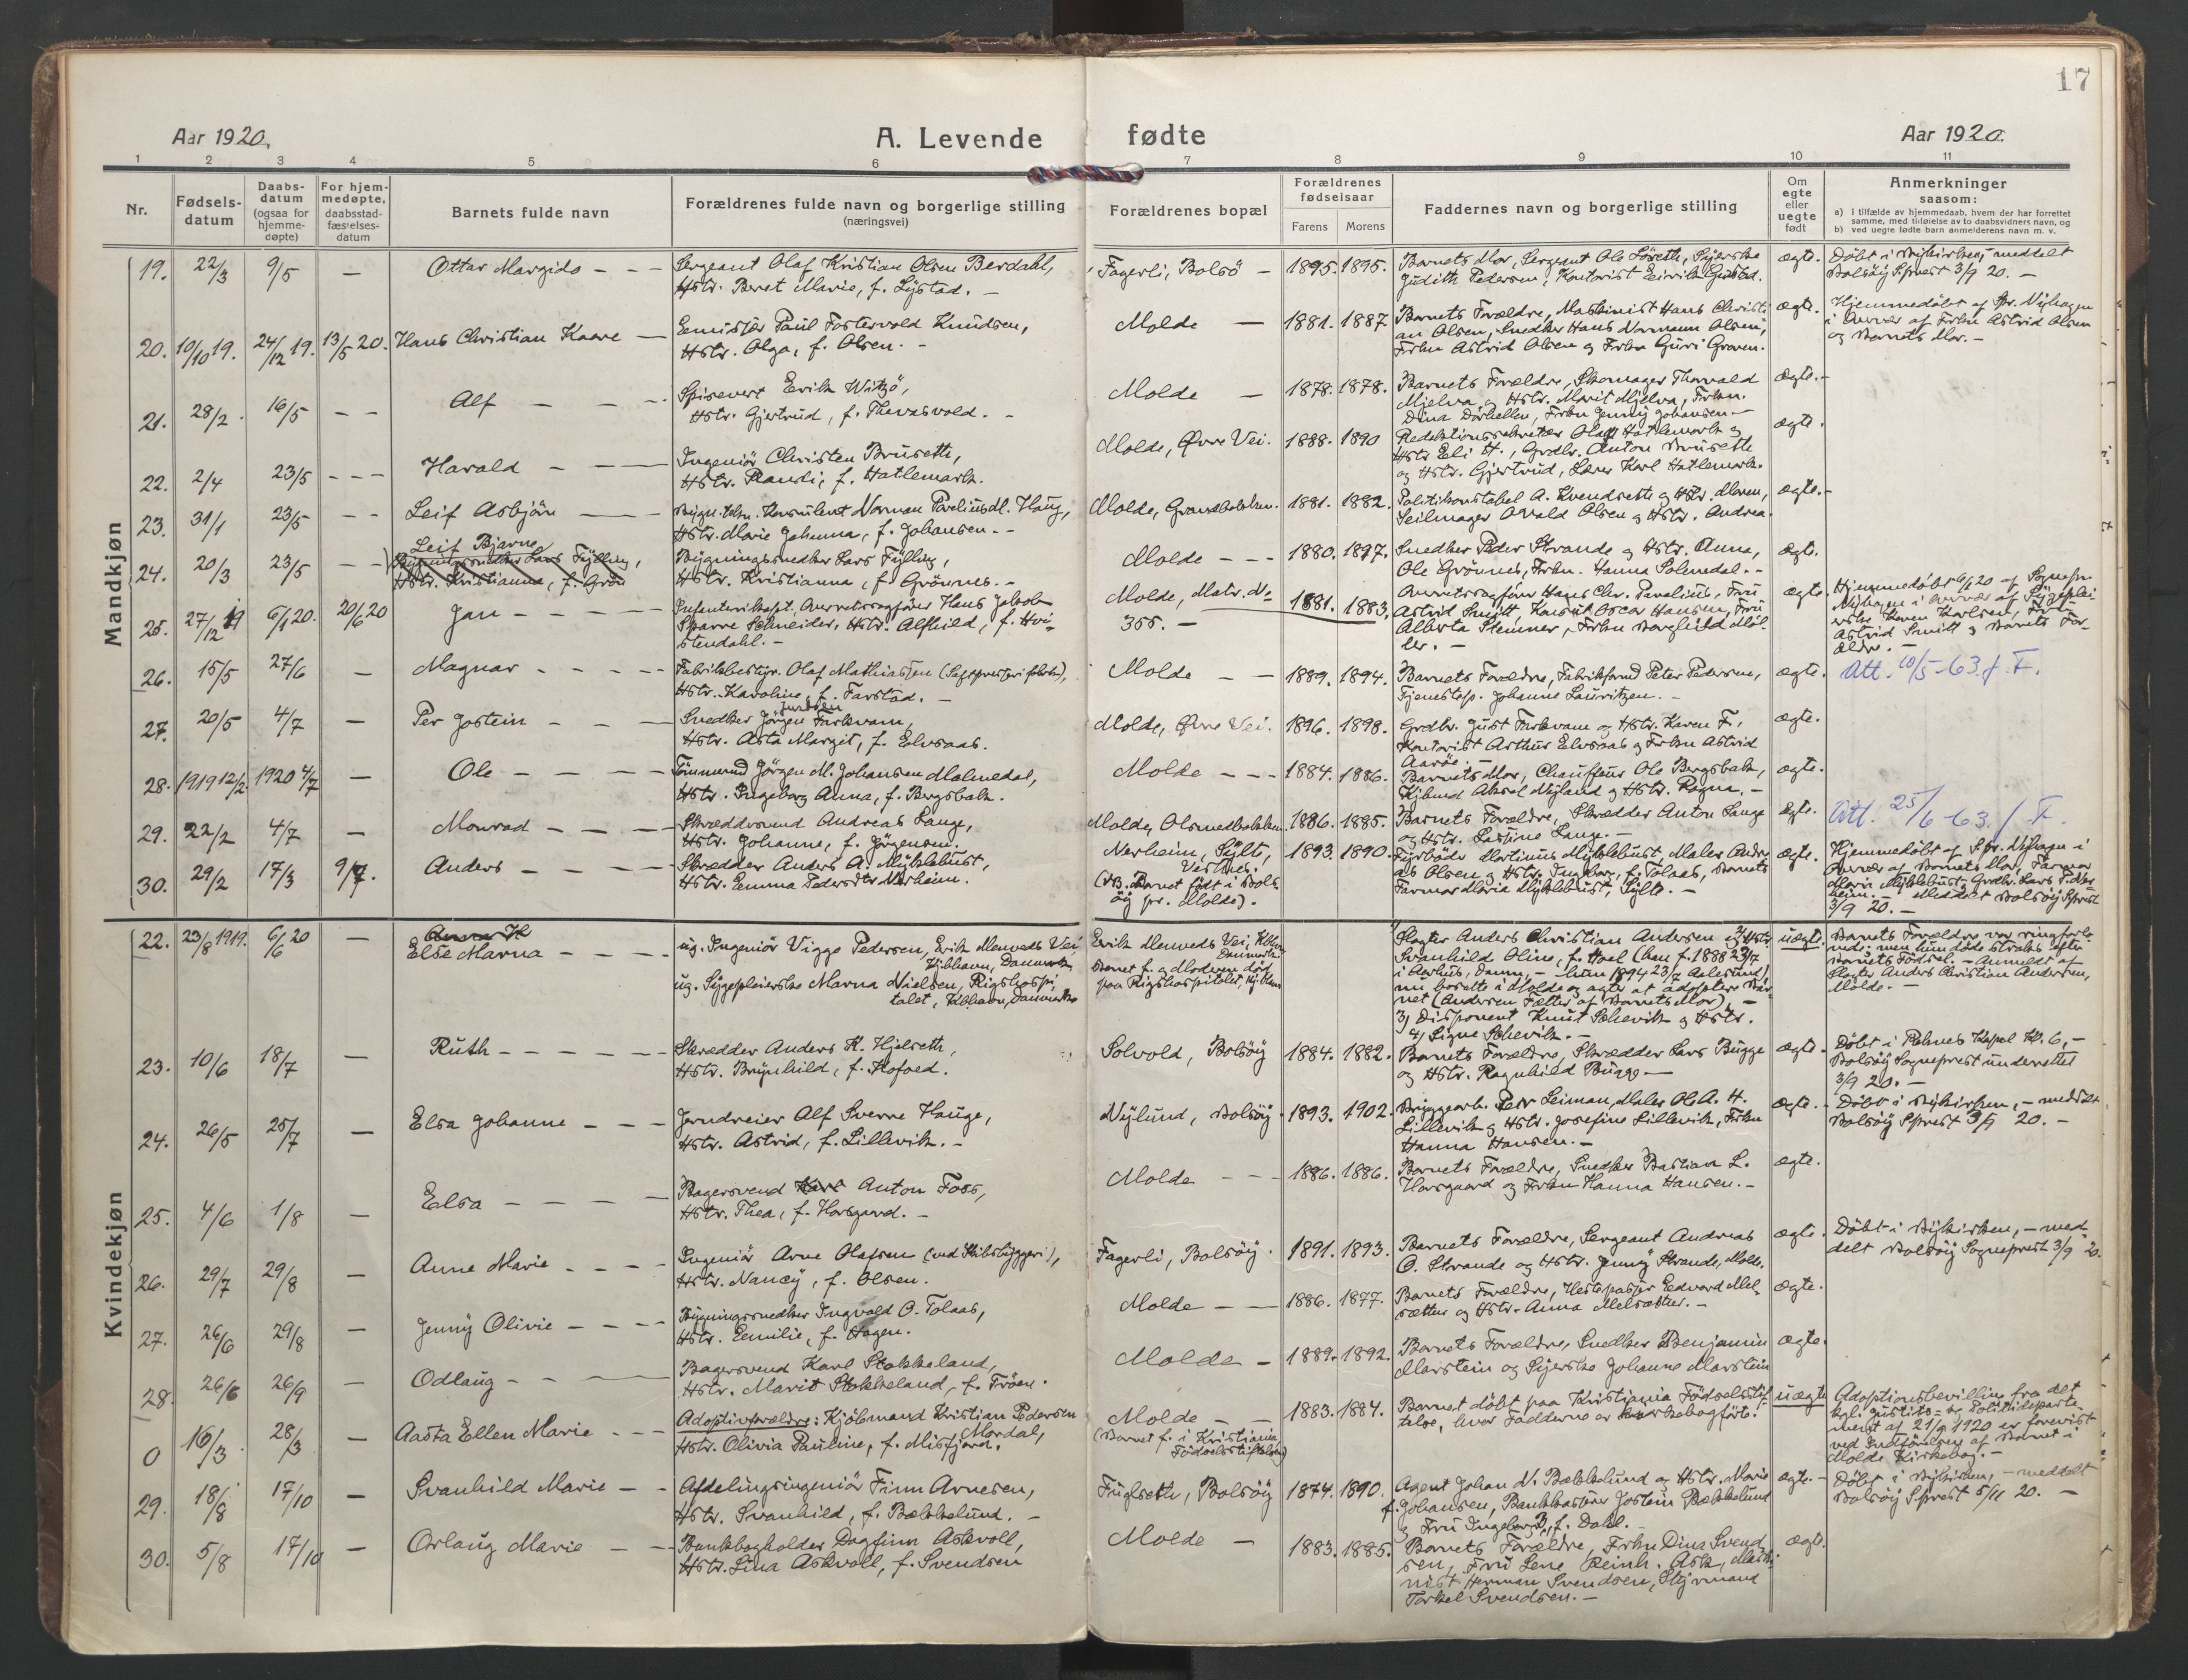 17
Aar 1920.
A. Levende fødte
Aar 1920.
1 2 3 4 5 6 7 8 9 10 11
Nr.
Fødsels-
datum
Daabs-
datum
(ogsaa for
hjemme-
døpte)
For hjem-
medøpte,
daabsstad-
fæstelses-
datum
Barnets fulde navn
Forældrenes fulde navn og borgerlige stilling
(næringsvei)
Forældrenes bopæl
Forældrenes
fødselsaar
Farens Morens
Faddernes navn og borgerlige stilling
Om
egte
eller
uegte
født
Anmerkninger
saasom:
a) i tilfælde av hjemmedaab, hvem der har forrettet
samme, med tilføielse av to daabsvidners navn, og
b) ved uegte fødte barn anmelderens navn m. v.
Mandkjøn
19. 22/3 9/5 — Ottar Margido — Sergeant Olaf Kristian Olsen Berdahl,
Hstr. Beret Marie, f. Lystad. —
Fagerli, Bolsö — 1895. 1895.
Barnets Mor, Sergeant Ole Löseth, Syerske
Judith Pedersen, Kontorist Eirik Gjestad.
ægte.
Döbt i Nykirken, meddelt
Bolsöy Sprest 3/9 20. —
20. 10/10 19. 24/12 19. 13/5 20. Hans Christian Kaare — Emissær Paul Fostervold Knudsen,
Hstr. Olga, f. Olsen. —
Molde — 1881. 1887.
Barnets Forældre, Maskinist Hans Christi
an Olsen, Snedker Hans Normann Olsen,
Frkn Astrid Olsen og Frkn Guri Graven.
ægte.
Hjemmedöbt af Spr. Nyhagen
i Overvær af Frkn Astrid Olsen
og Barnets Mor. —
21. 28/2. 16/5 — — Alf — — Spisevert Eerik Witzö,
Hstr. Gjertrud, f. Tharasvold. —
Molde — 1878. 1878.
Barnets Forældre, Skomager Thorvald
Mjelva og Hstr. Marit Mjelva, Frkn.
Dina Dörhellen, Frkn Jenny Johansen —
ægte. —
22. 2/4 23/5 — — — Harald — — Ingeniör Christen Bruseth,
Hstr. Randi, f. Hatlemark.
Molde, Øvre Vei. 1888. 1890
Redaktionssekretær Olaf Hatlemark og
Hstr Eli H., Grdbr. Anton Bruseth
og Hstr. Gjertrud, Lærer Karl Hatlemark.
ægte.
23. 31/1 23/5 — — Leif Asbjön — Bygn.tekn. Konsulent Norman Paveliusdl. Haug,
Hstr. Marie Johanna, f. Johansen. —
Molde, Grandbakken. 1881. 1882.
Politikonstabel A. Kvendseth og Hstr. Maren,
Seilmager Osvald Olsen og Hstr. Andrea.
ægte. —
24. 20/3 23/5 — — Leif Bjarne
Bygningssnedker Lars Fylling,
Hstr. Kristianna, f. Grön
Bygningssnedker Lars Fylling,
Hstr. Kristianna, f. Grönnes. —
Molde — — 1880. 1897.
Snedker Peder Strande og Hstr. Anna,
Ole Grönnes, Frkn. Hanna Solemdal. —
ægte.
25. 27/12 19 6/1 20. 20/6 20 Jan — — Infanterikapt. Overretssagförer Hans Jakob
Sparre Schneider, Hstr. Alfhild, f. Hvi-
stendahl. —
Molde, Matr. No
355. —
1881. 1883.
Overretssagförer Hans Chr. Pavelius, Fru
Astrid Smitt, Konsul Oscar Hansen, Fru
Alberta Stenner, Frkn Borghild Möl-
ler. —
ægte.
Hjemmedöbt 6/1 20 af Sognepr.
Nyhagen i Overvær af Sygeplei-
erske Karen Karlsen, Frkn
Astrid Smitt og Barnets For-
ældre. —
26. 15/5 27/6 — Magnar — — Fabrikbestyr. Olaf Mathiassen (Saftpresseri fabrik),
Hstr. Karoline, f. Farstad. —
Molde — — 1889. 1894.
Barnets Forældre, Fabrikformd Peter Pedersen,
Tjenestep. Johanne Lauritzen. —
ægte.
Att. 10/5-63. f. F.
27. 20/5 4/7 — Per Jostein — — Snedker Jörgen Farkvam,
Hstr. Asta Margit, f. Elvsaas.
Molde, Øvre Vei. 1896. 1898.
Grdbr. Gust Farkvam og Hstr. Karen F.,
Kontorist Arthur Elvsaas og Frkn Astrid
Aarös. —
ægte.
28. 1919 12/2. 1920 4/7 — Ole — — Tömmermd Jörgen M. Johansen Malmedal,
Hstr. Ingeborg Anna, f. Bergsbak.
Molde — — 1884. 1886.
Barnets Mor, Chauffeur Ole Bergsbak,
Kjöbmd Aksel Nyland og Hstr. Ragna. —
ægte.
29. 22/2 4/7 — Monrad — — Skræddersvend Andreas Lange,
Hstr. Johanne, f. Jörgensen.
Molde, Olsmedbakken. 1886. 1885.
Barnets Forældre, Skrædder Anton Lange
og Hstr. Lassine Lange. —
ægte.
Att. 25/6-63. f. F.
30. 29/2 17/3 9/7. Anders — — Skrædder Anders A. Myklebust,
Hstr. Emma Pedersdtr Nerheim.
Nerheim, Sylte,
Vestnes.
(NB. Barnet födt i Bols-
öy pr. Molde).
1893. 1890.
Fyrböder Martinus Myklebust, Maler Andre
as Olsen og Hstr. Ingeborg, f. Tolaas, Barnets
Farmor Maria Myklebust, Sylte. —
ægte.
Hjemmedöbt af Spr. Nyhagen i
Overvær af Barnets Mor, Farmor
Maria Myklebust, Grdbr. Lars P. Ner-
heim. — Meddelt Bolsöy Sprest
3/9 20. —
Kvindekjøn
22. 23/8 1919. 6/6 20 — Anna H
Else Marna — — ug. Ingeniör Viggo Pedersen, Erik Menveds Vei,
Kjöbhavn, Danmark,
ug. Sygepleierske Marna Nielsen, Rigshospi-
talet, Kbhavn, Danmark
Erik Menveds Vei, Kbhvn
Danmark.
Barnet f. og Moderen död
paa Rigshospitalet, Kjöbhvn
Slagter Anders Christian Andersen og Hstr.
Svanhild Oline, f. Hoel (han f. 1888 23/7
i Aarhus, Danm., — hun 1894 23/7 Aalesund),
nu bosatte i Molde og agter at adoptere Bar-
net (Andersen Fætter af Barnets Mor), —
3) Disponent Knut Schevik og Hstr.
4) Signe Schevik. —
uægte.
Barnets Forældre var ringforlo-
vede; men hun döde straks efter
Barnets Födsel. — Anmeldt af
Slagter Anders Christian Andersen,
Molde. —
23. 10/6 18/7 — Ruth — — Skrædder Anders K. Hjelseth,
Hstr. Brynhild, f. Kofoed.
Solvold, Bolsöy 1884. 1882.
Barnets Forældre, Skrædder Lars Bugge
og Hstr. Ragnhild Bugge —
ægte.
Döbt i Reknes Kapel Kl. 6, —
Bolsöy Sogneprest underrettet
3/9 20. —
24. 26/5 25/7 — Elsa Johanne — — Jerndreier Alf Sverre Hauge,
Hstr. Astrid, f. Lillevik. —
Nylund, Bolsöy. 1893. 1902.
Bryggearb. Petr Seiman, Maler Ole A. H.
Lillevik og Hstr. Josefine Lillevik, Frkn
Hanna Hansen. —
ægte. —
Döbt i Nykirken, — meddelt
Bolsöy Sprest 3/9 20. —
25. 4/6 1/8 — Elsa — — Bagersvend Anton Foss,
Hstr. Thea, f. Horsgard. —
Molde — — 1886. 1886.
Barnets Forældre, Snedker Bastian L.
Horsgaard og Frkn Hanna Hansen. —
ægte.
26. 29/7 29/8 — Anne Marie — — Ingeniör Arne Olafsen (ved Skibsbyggeri),
Hstr. Nancy, f. Olsen.
Fagerli, Bolsöy. 1891. 1893.
Barnets Forældre, Sergeant Andreas
O. Strande og Hstr. Jenny Strande, Molde.
ægte.
Döbt i Nykirken, — med
delt Bolsöy Sogneprest 3/9 20.
27. 26/6 29/8 — Jenny Olivie — — Bygningssnedker Ingvald O. Tolaas,
Hstr. Emilie, f. Hagen.
Molde — — 1886. 1877.
Barnets Forældre, Hestepasser Edvard Mel-
sætter og Hstr. Anna Melsætter. —
ægte.
28. 26/6 26/9 — Odlaug — — Bagersvend Karl Stokkeland,
Hstr. Marit Stokkeland, f. Tröen.
Molde — 1889. 1892.
Barnets Forældre, Snedker Benjamin
Marstein og Syerske Johanne Marstein
ægte.
0 16/3. 28/3 — Aasta Ellen Marie — — Adoptivforældre: Kjöbmand Kristian Pedersen
Mordal,
Hstr. Olivia Pauline, f. Misfjord.
Molde — —
(Barnet f. i Kristiania
Födselsstiftelse)
1883. 1884.
Barnet döbt paa Kristiania Födselsstif-
telse, hvor Fadderne er kirkebogförte.
uægte
Adoptionsbevilling fra det
kgl. Justits- og Politideparte-
ment af 21/9 1920 er forevist
ved Indförelsen af Barnet i
Molde Kirkebog. —
29. 18/8 17/10 — Svanhild Marie — — Afdelingsingeniör Finn Arnesen,
Hstr. Svanhild, f. Bækkelund. —
Fuglseth, Bolsöy 1874. 1890.
Agent Johan N. Bækkelund og Hstr. Marie
f. Johansen, Bankkasserer Jostein Bækkelund
og Fru Ingeborg B., f. Dahl. —
ægte. —
Döbt i Nykirken, — meddelt
Bolsöy Sprest 5/11 20. —
30. 5/8 17/10 — Orlaug Marie — — Bankbogholder Dagfinn Askvoll,
Hstr. Lina Askvoll, f. Svendsen
Molde — 1883. 1885.
Barnets Forældre, Frkn Dina Svend
sen, Fru Lene Reinh. Ask, Maski-
nist Herman Svendsen, Styrmand
Torkel Svendsen. —
ægte.